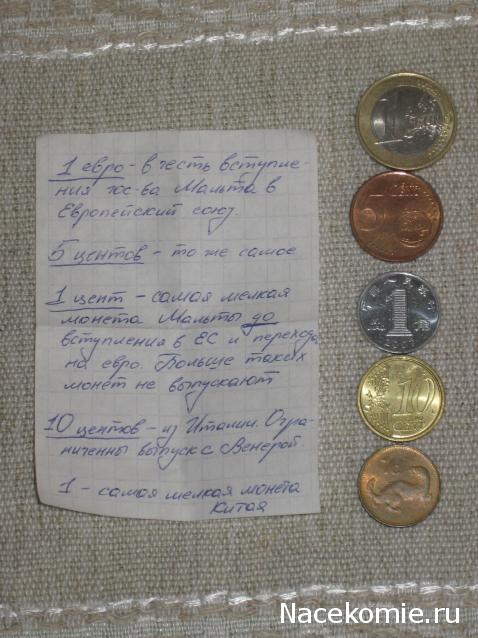 1 евро - в честь вступле-
ния гос-ва Мальта в
Европейский союз.
5 центов - то же самое
1 цент - самая мелкая
монета Мальты до
вступления в ЕС и перехода
на евро. Больше таких
монет не выпускают
10 центов - из Италии. Огра-
ниченны выпуск с Венерой.
1 - самая мелкая монета
Китая
1
5
1
10
Nacekomie.ru